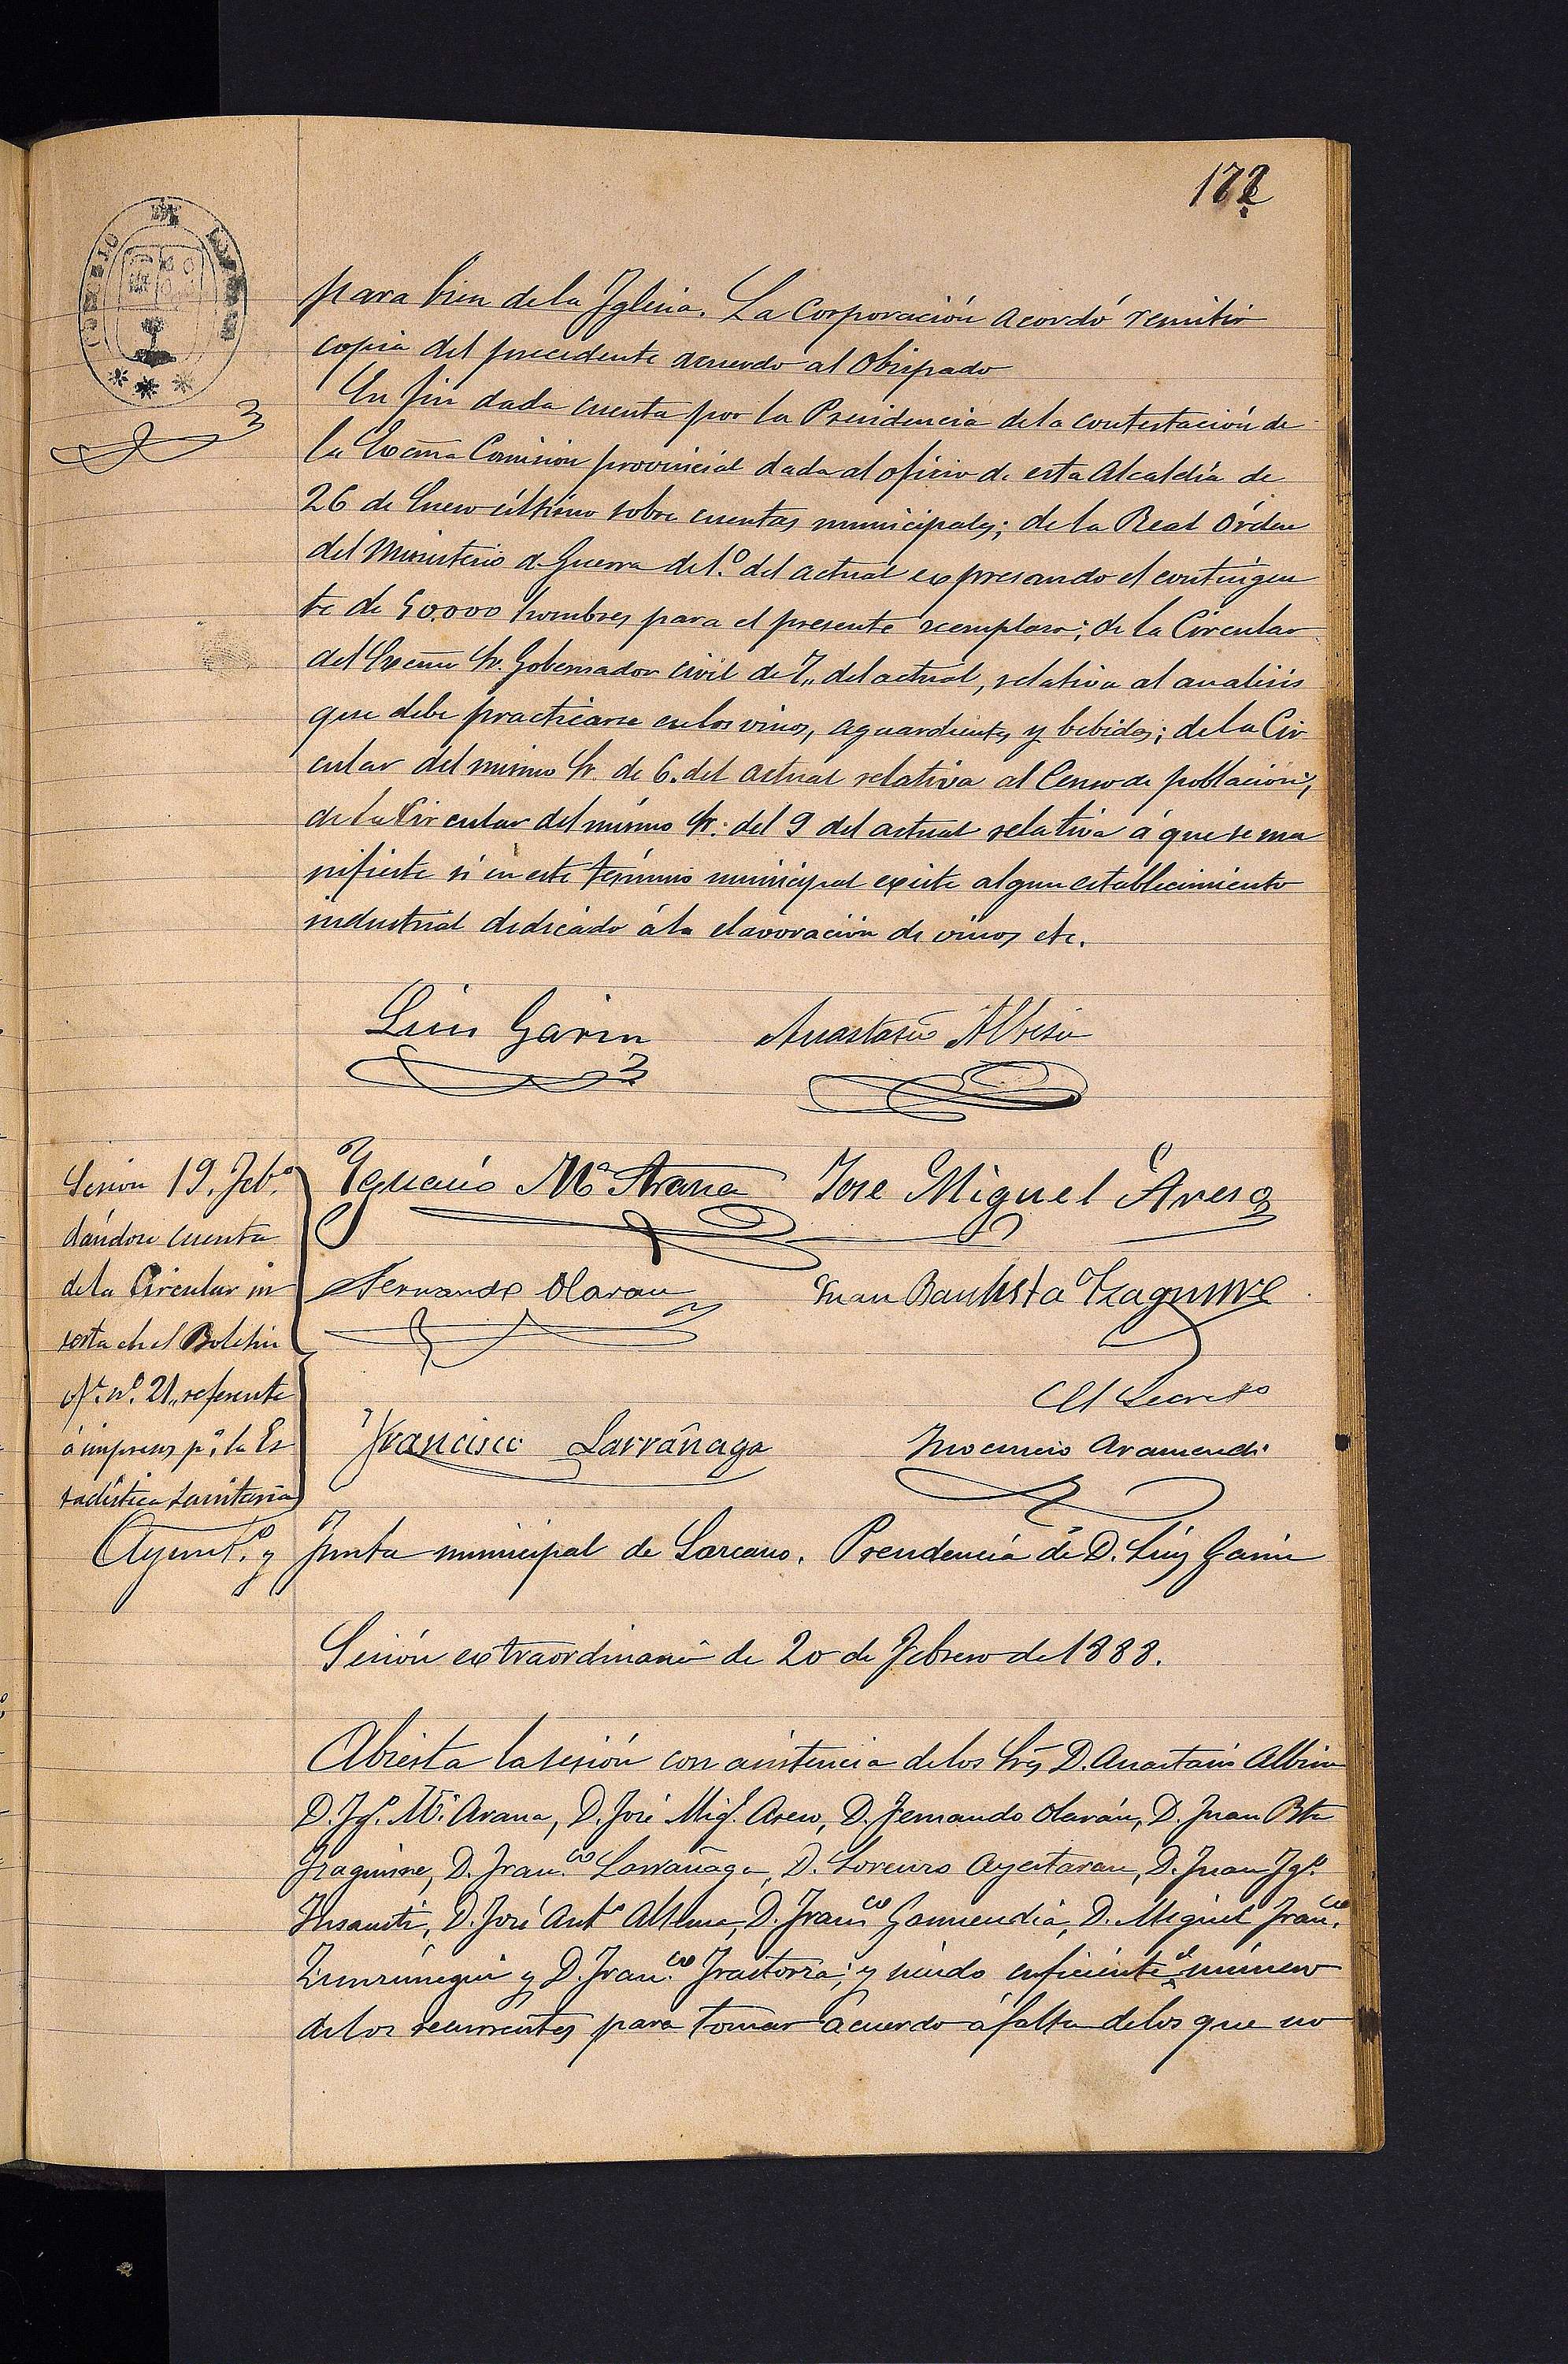 172
para bien de la Iglesia. La Corporación acordó remitir
copia del precedente acuerdo al Obispado
En fin dada cuenta por la Presidencia de la contestación de
la Excma Comisión provincial dada al oficio de esta Alcaldía de
26 de Enero último sobre cuentas municipales; de la Real Órden
del Ministerio de Guerra del 1.º del actual expresando el contingen
te de 50.000 hombres para el presente reemplazo; de la Circular
del Excmo Sr. Gobernador civil de 7,, del actual, relativa al analisis
que debe practicarse en los vinos, aguardientes y bebidas; de la Cir
cular del mismo Sr. de 6. del actual relativa al Censo de población;
de la Circular del mismo Sr. del 9 del actual relativa á que se ma
nifieste si en este término municipal existe algun establecimiento
industrial dedicado á la elavoración de vinos etc.
Luis Garin Anastasio Albisu
Ignacio Mª Arana Jose Miguel Areso
Fernando Olaran Juan Bautista Izaguirre
El Secret.o
Francisco Larrañaga Inocencio Aramendi
Sesion 19. Feb.º
dándose cuenta
de la Circular in
serta en el Boletin
of.l n.º 21,, referente
á impresos p.ª la Es
tadistica Sanitaria
Ayunt.º y Junta municipal de Lazcano. Presidencia de D. Luis Garin
Sesión extraordinaria de 20 de Febrero de 1888.
Abierta la sesión con asistencia de los Srs D. Anastasio Albisu
D. Ig.º Mª Arana, D. José Mig.l Areso, D. Fernando Olarán, D. Juan Bta
Izaguirre, D. Fran.co Larrañaga, D. Lorenzo Ayestaran, D. Juan Ig.º
Insausti, D. José Ant.º Altuna, D. Fran.co Garmendia, D. Miguel Fran.co
Zunzúnegui y D. Fran.co Irastorza; y siendo suficiente el número
de los recurrentes para tomar acuerdo á falta de los que no